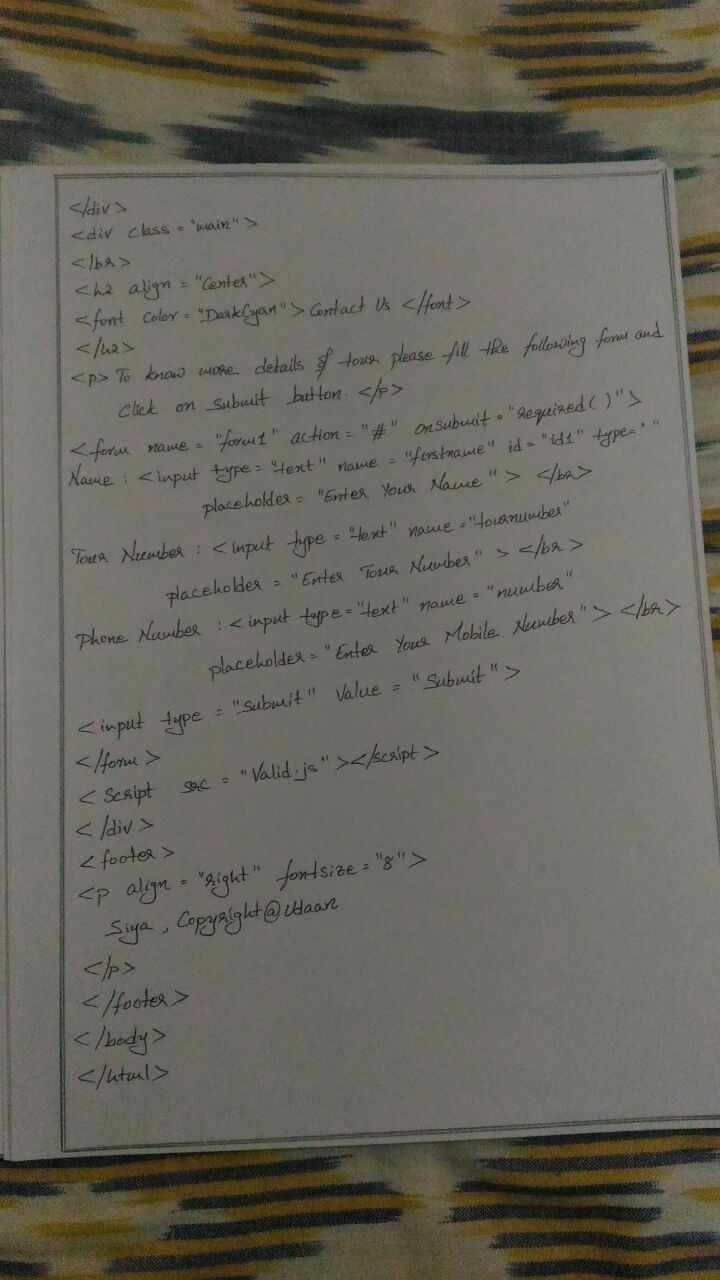 </div>
<div class = "main" >
</br>
<h2 align = "Center">
<font Color = "DarkCyan"> Contact Us </font>
</h2>
<p> To know more details of tour please fill the following form and
Click on Submit button. </p>
<form name = "form1" action = "#" onsubmit = "required( )">
Name : <input type = "text" name = "firstname" id = "id1" type= " "
placeholder = "Enter Your Name" > </br>
Tour Number : <input type = "text" name = "tournumber"
placeholder = "Enter Tour Number" > </br>
Phone Number : <input type = "text" name = "number"
placeholder = "Enter Your Mobile Number" > </br>
<input type = "Submit" Value = "Submit" >
</form>
<Script src = "Valid.js" ></script>
</div>
<footer>
<p align = "right" fontsize = "8">
Siya , Copyright@Udaan
</p>
</footer>
</body>
</html>